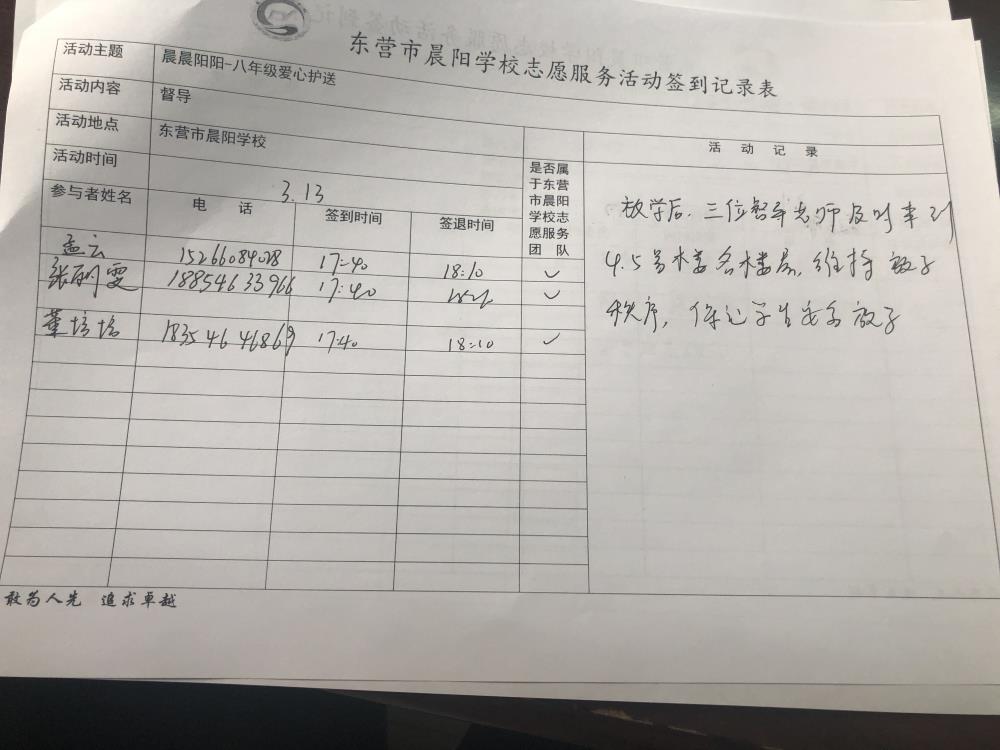 东营市晨阳学校志愿服务活动签到记录表
活动主题 晨晨阳阳-八年级爱心护送
活动内容 督导
活动地点 东营市晨阳学校
活动时间 3.13
参与者姓名 电 话 签到时间 签退时间 是否属于东营市晨阳学校志愿服务团 队 活 动 记 录
孟云 15266084028 17:40 18:10 ✓
张丽雯 18854633966 17:40 ✓
董培培 18354646869 17:40 18:10 ✓
放学后,三位督导老师及时来到
4.5号楼各楼层,维持放学
秩序,保证学生安全放学
敢为人先 追求卓越